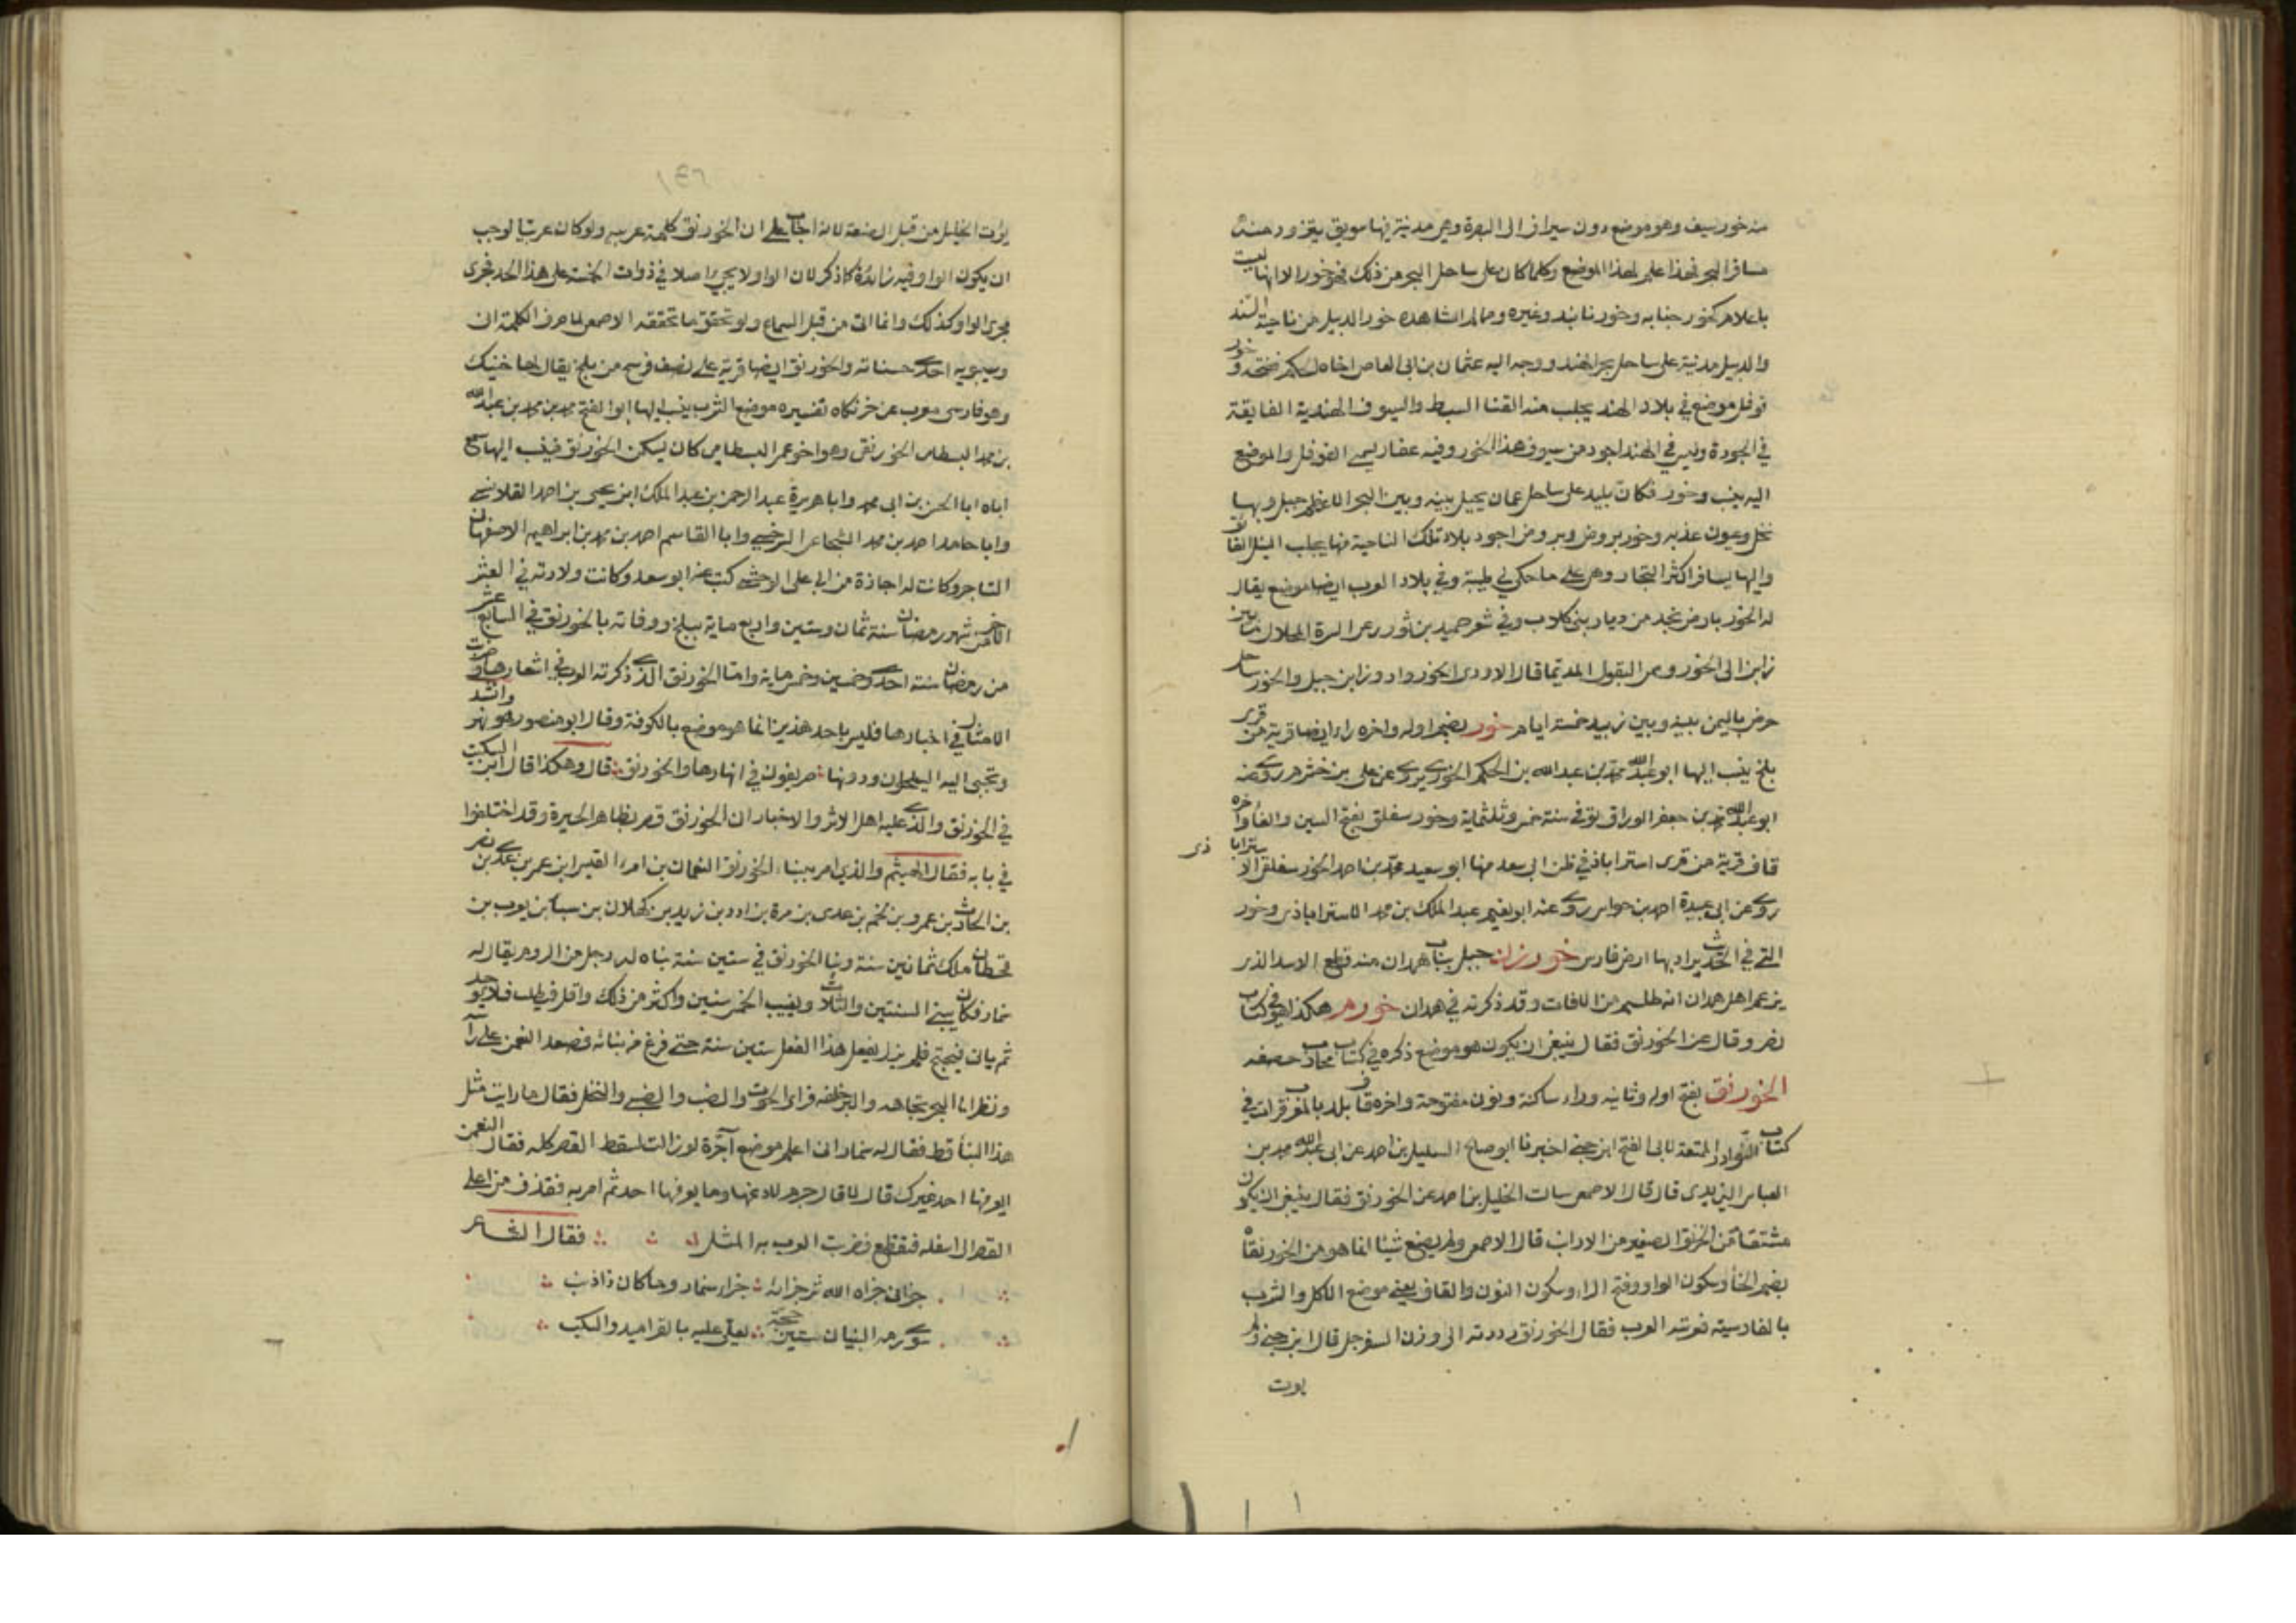 منه خور سيف وهو موضع دون سيراف الى البصرة وهي مدينة فيها سويق يتزود منه
مسافر البحر فهذا علم لهذا الموضع وكلما كان على ساحل البحر من ذلك فهو خور الا انها ليست
باعلام كخور جنابه وخور نابند وغيره ومما لم اشاهده خور الديبل من ناحية السند
والديبل مدينة على ساحل بحر الهند ووجه اليه عثمان بن ابى العاص اخاه الحكم ففتحه وخور
فوفل موضع في بلاد الهند يجلب منه القنا السبط والسيوف الهندية الفايقة
في الجودة وليس في الهند اجود من سيوف هذا الخور وفيه عقار يسمى الفوفل والموضع
اليه ينسب وخور فكان بليد على ساحل عمان يحيل بينه وبين البحر الاعظم جبل وبها
نخل وعيون عذبه وخور بروض وبروض اجود بلاد تلك الناحية منها يجلب النيل الفائق
واليها يسافر اكثر التجار وهى على ما حكى لي طيبة وفي بلاد العرب ايضا موضع يقال
له الخور بارض نجد من ديار بنى كلاب وفي شعر حميد بن ثور رعى السرة المحلال ما بين
زابن الى الخور وسمى البقول المديما قال الاودى الخور واد وزابن جبل والخور ساحل
حرض باليمن بينه وبين زبيد خمسة ايام خور بضم اوله واخره راء ايضا قرية من قرى
بلخ ينسب اليها ابو عبد الله محمد بن عبد الله بن الحكم الخورى يروى عن على بن خشرم روى عنه
ابو عبد الله محمد بن جعفر الوراق توفى سنة خمس وثلثماية وخور سفلق بفتح السين والفاء واخره
قاف قرية من قرى استراباذ في ظن ابى سعد منها ابو سعيد محمد بن احمد الخور سفلقى الاستراباذى
روى عن ابى عبيدة احمد بن حواس روى عنه ابو نعيم عبد الملك بن محمد الاستراباذى وخور
التى في الحديث يراد بها ارض فارس خورزن جبل بباب همدان منه قطع الاسد الذى
يزعم اهل همدان انه طلسم من الافات وقد ذكرته في همدان خورم هكذا هو في كتاب
نصر وقال عن الخورنق فقال ينبغى ان يكون هو موضع ذكره في كتاب محارب حصفه
الخورنق بفتح اوله وثانيه وراء ساكنة ونون مفتوحة واخره قاف بلد بالمغرب قرات في
كتاب النوادر الممتعة لابى الفتح ابن جنى اخبرنا ابو صالح السليل بن احمد عن ابى عبد الله محمد بن
العباس اليزيدى قال قال الاصمعى سالت الخليل بن احمد عن الخورنق فقال ينبغى ان يكون
مشتقا من الخرنق الصغير من الارانب قال الاصمعى ولم يصنع شيئا انما هو من الخورنقاه
بضم الخاء وسكون الواو وفتح الراء وسكون النون والقاف يعنى موضع الاكل والشرب
بالفارسيته فعربته العرب فقال الخورنق رددته الى وزن السفرجل قال ابن جنى ولم
يوت
يؤت الخليل من قبل الصنعة لانه اجاب على ان الخورنق كلمة عربيه ولو كان عربيا لوجب
ان يكون الواو فيه زائدة كما ذكر لان الواو لا يجىء اصلا في ذوات الخمسة على هذا الحد فجرى
مجرى الواو كذلك وانما اتى من قبل السماع ولو تحقق ما تحققه الاصمعى لما صرف الكلمة ان
وسيبويه احدى حسناته والخورنق ايضا قرية على نصف فرسخ من بلخ يقال لها خبنك
وهو فارسى معرب عن خرنكاه تفسيره موضع الشرب ينسب اليها ابو الفتح محمد بن محمد بن عبد الله
بن محمد البسطامى الخورنقى وهو اخو عمر البسطامى كان يسكن الخورنق فنسب اليها سمع
اباه ابا الحسن بن ابى محمد وابا هريرة عبد الرحمن بن عبد الملك ابن يحيى بن احمد القلانسى
وابا حامد احمد بن محمد الشجاعى السرخسى وابا القاسم احمد بن محمد بن ابراهيم الاصفهانى
التاجر وكانت له اجازة من ابى على الوخشى كتب عنه ابو سعد وكانت ولادته في العشر
الاخر من شهر رمضان سنة ثمان وستين واربع ماية ببلخ ووفاته بالخورنق في السابع عشر
من رمضان سنة احدى وخمسين وخمس ماية واما الخورنق الذى ذكرته العرب في اشعارها وضربت
الامثال في اخبارها فليس باحد هذين انما هو موضع بالكوفة وقال ابو منصور هو نهر وانشد
وتجبى اليه السيلحون ودونها ∴ صريفون في انهارها والخورنق ∴ قال وهكذا قال ابن السكيت
في الخورنق والذى عليه اهل الاثر والاخبار ان الخورنق قصر بظاهر الحيرة وقد اختلفوا
في بانيه فقال الهيثم والذى امر ببناء الخورنق النعمان بن امرء القيس ابن عمر بن عدى بن نصر
بن الحارث بن عمرو بن لخم بن عدى بن مرة بن ادد بن زيد بن كهلان بن سبا بن يعرب بن
قحطان ملك ثمانين سنة وبنا الخورنق في ستين سنة بناه له رجل من الروم يقال له
سنمار فكان يبنى السنتين والثلاث ويغيب الخمس سنين واكثر من ذلك واقل فيطلب فلا يوجد
ثم ياتى فيحتج فلم يزل يفعل هذا الفعل ستين سنة حتى فرغ من بنائه فصعد النعمن على راسه
ونظر الى البحر تجاهه والبر خلفه فراى الحوت والضب والضبى والنخل فقال ما رايت مثل
هذا البنأ قط فقال له سنمار انى اعلم موضع آجرة لو زالت لسقط القصر كله فقال النعمن
ايعرفها احد غيرك قال لا قال جرم لادعنها وما يعرفها احد ثم امر به فقذف من اعلى
القصر الى اسفله فتقطع فضربت العرب به المثل ∴ فقال الشاعر
جزانى جزاه الله شر جزائه ∴ جزاء سنمار وما كان ذا ذنب
سوى رمه البنيان ستين حجة ∴ يعلى عليه بالقراميد والسكب